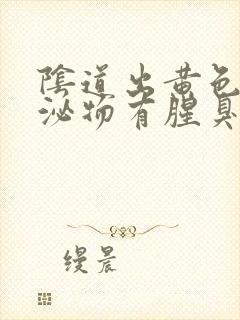 陰道出黄色
泌物有腥臭
缦晨